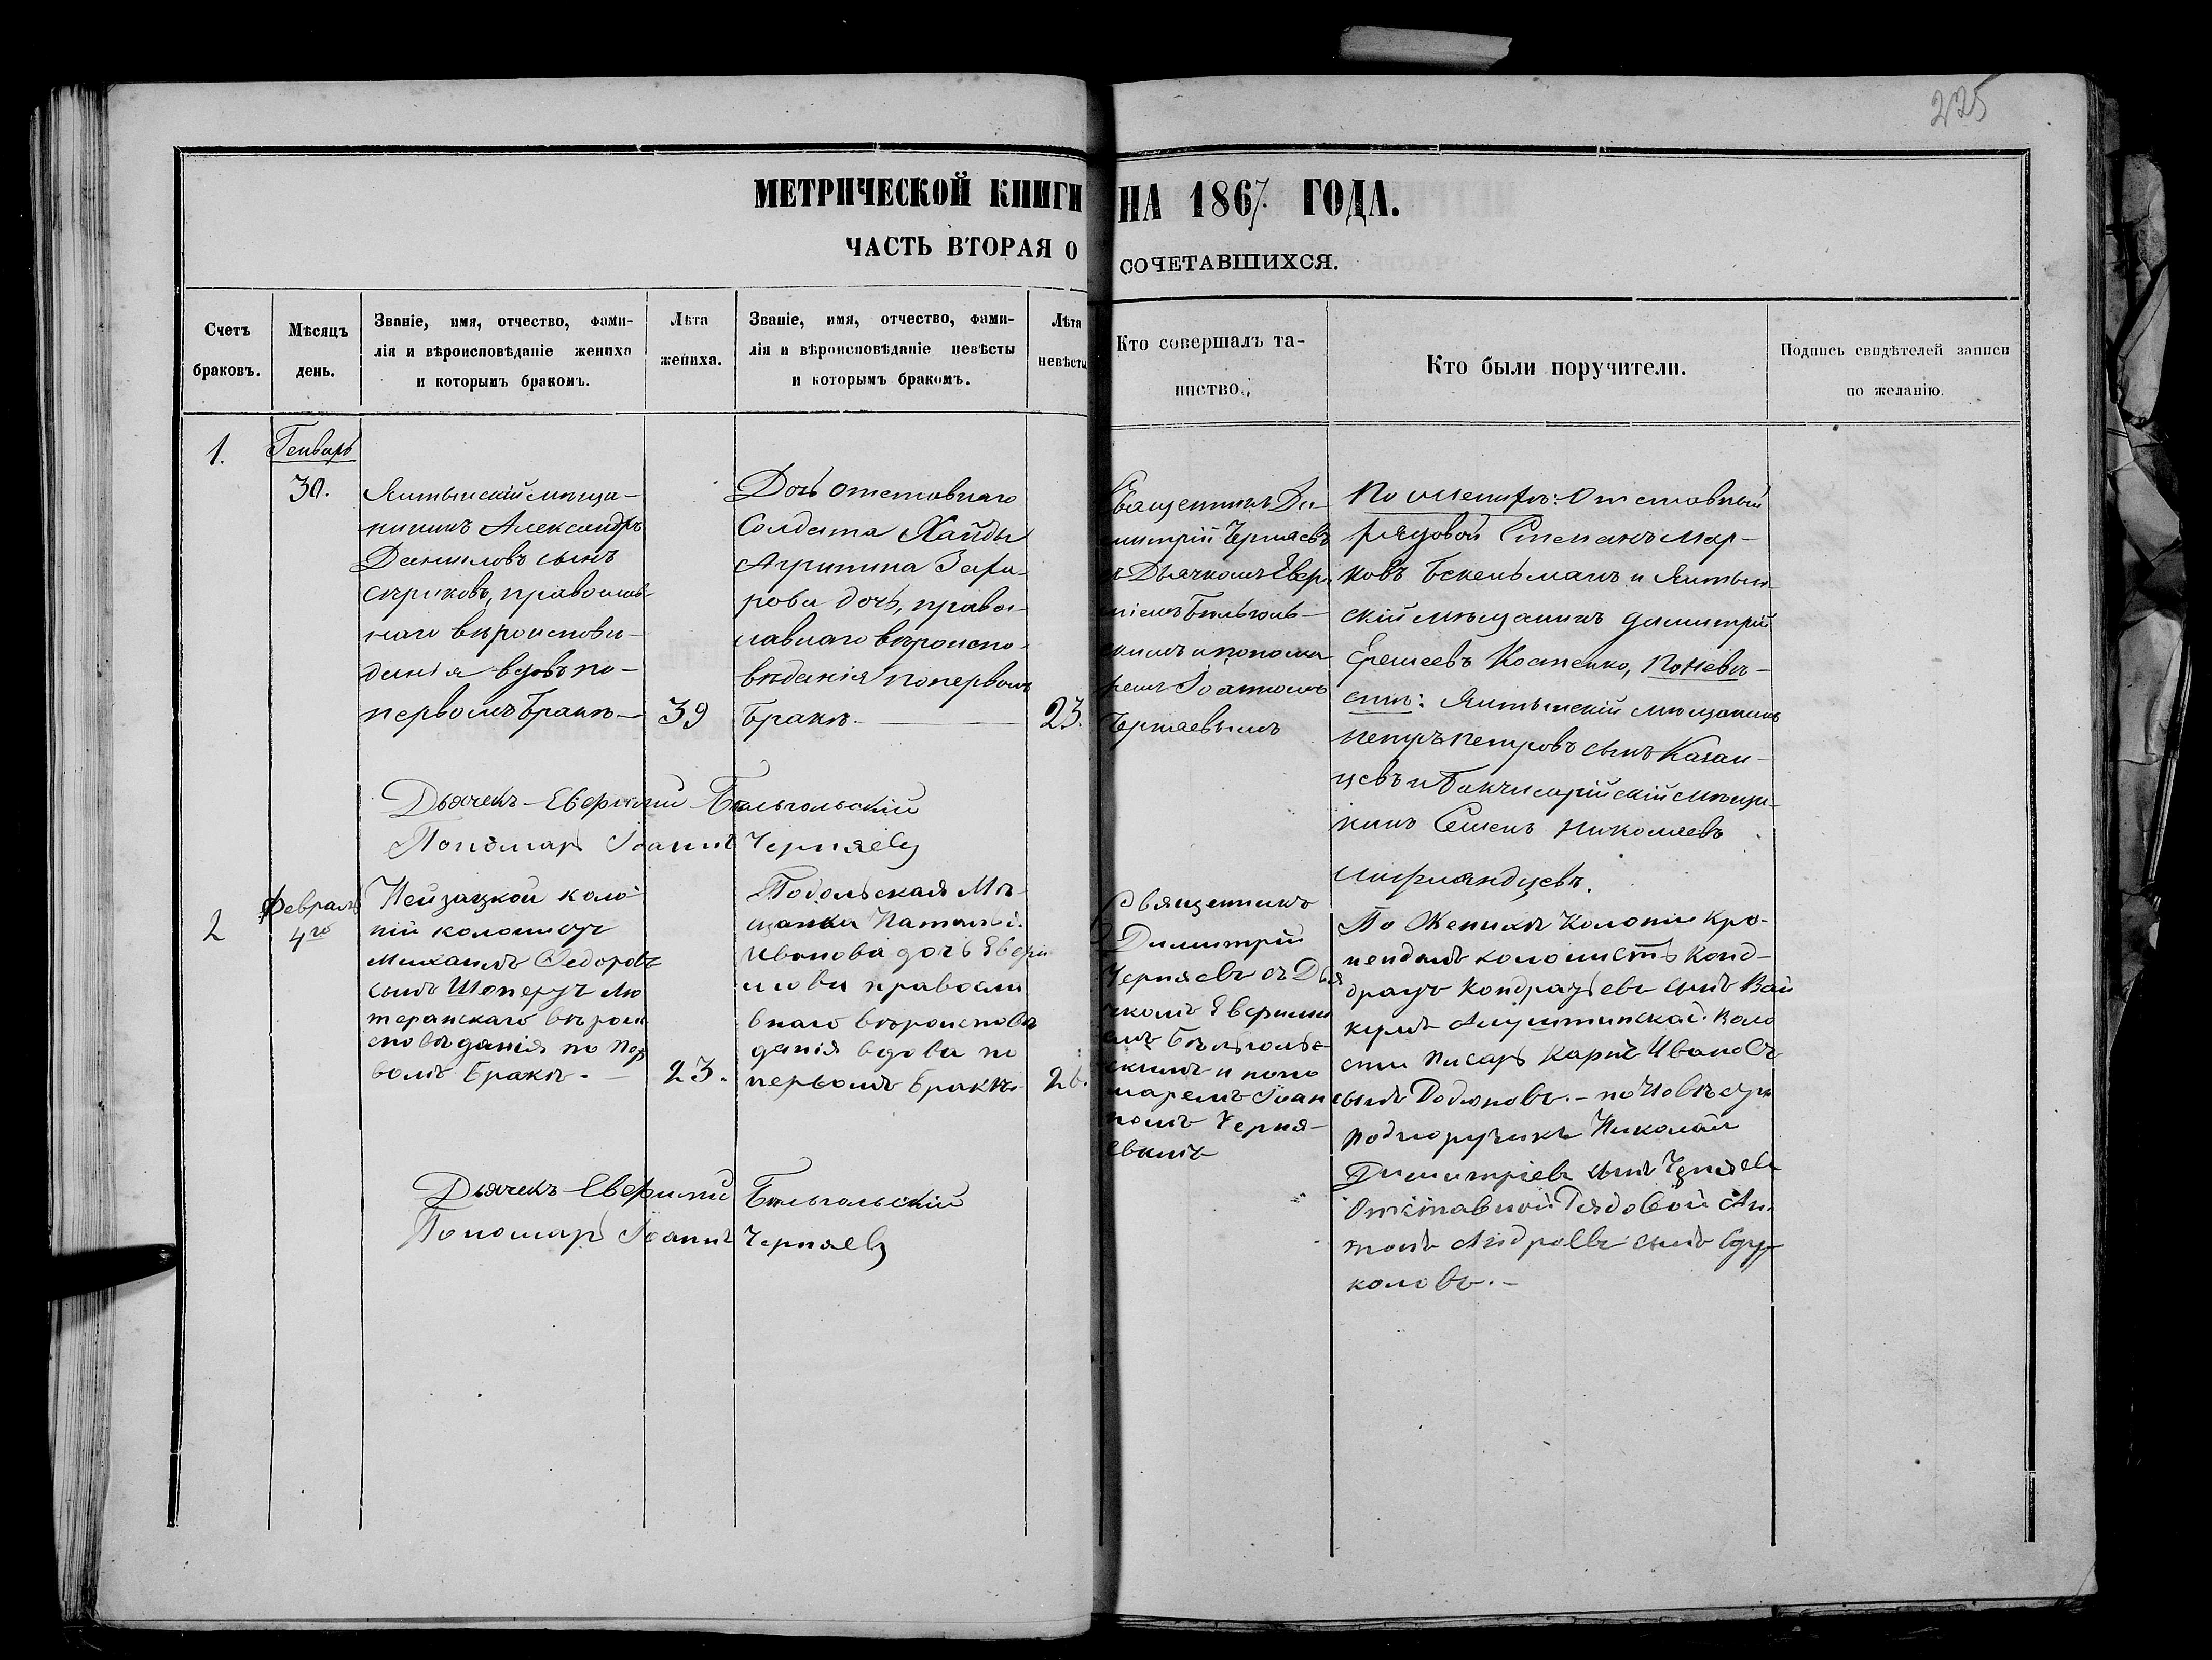 225
МЕТРИЧЕСКОЙ КНИГИ НА 1867 ГОДА.
ЧАСТЬ ВТОРАЯ О СОЧЕТАВШИХСЯ.
Счетъ
браковъ.
Мѣсяцъ
день.
Званіе, имя, отчество, фами-
лія и вѣроисповѣданіе жениха
и которымъ бракомъ.
Лѣта
жениха.
Званіе, имя, отчество, фами-
лія и вѣроисповѣданіе невѣсты
и которымъ бракомъ.
Лѣта
невѣсты
Кто совершалъ та-
инство.
Кто были поручители.
Подпись свидѣтелей записи
по желанію.
1.
Генварь
30.
Ялтынскій мѣща-
нинъ Александръ
Даниловъ сынъ
православ-
наго вѣроисповѣ-
данія вдовъ по-
первомъ бракѣ
39
Дочь отставнаго
Солдата
Агрипина
дочь, право-
лавнаго вѣроиспо-
вѣданія по первомъ
бракѣ.
23.
Священникъ Ди-
митрій Черняевъ
съ Дьячкомъ Евфи-
міемъ Бѣльголь-
скимъ и понома-
ремъ Іоанномъ
Черняевымъ
По женихѣ: Отставный
рядовой Степанъ Мар-
ковъ и Ялтын-
скій мѣщанинъ Димитрій
Еремеевъ Костенко, По невѣ-
стѣ: Ялтынскій мѣщанинъ
Петръ Петровъ сынъ Казан-
цевъ и Бакчисарійскій мѣща-
нинъ Семенъ Николаевъ
Лифляндцевъ.
Дьячекъ Евфимій Бѣльгольскій
Пономарь Іоаннъ Черняевъ
2
Февраль
4го
Нейзацкой коло-
ніи колонистъ
Михаилъ Федоровъ
сынъ Лю
теранскаго вѣрои
сповѣданія по пер
вомъ бракѣ.
23.
Подольская Мѣ-
щанка Наталья
Иванова дочь
православ
внаго вѣроисповѣ
данія вдова по
первомъ бракѣ
26.
Священникъ
Димитрій
Черняевъ съ Дья
чкомъ Евфимі
емъ Бѣльголь-
скимъ и поно
маремъ Іоан
номъ Черня-
евымъ
По Женихѣ Колоніи Кро-
нендалъ колонистъ Конд-
ратъ Кондратьевъ сынъ
Алуштинской Воло
сти Писарь Карпъ Ивановъ
сынъ по Невѣстѣ
подпоручикъ Николай
Димитріевъ сынъ Черняевъ
Отставной Рядовой Ан-
тонъ Андреевъ сынъ
коловъ.
Дьячекъ Евфимій Бѣльгольскій
Пономарь Іоаннъ Черняевъ